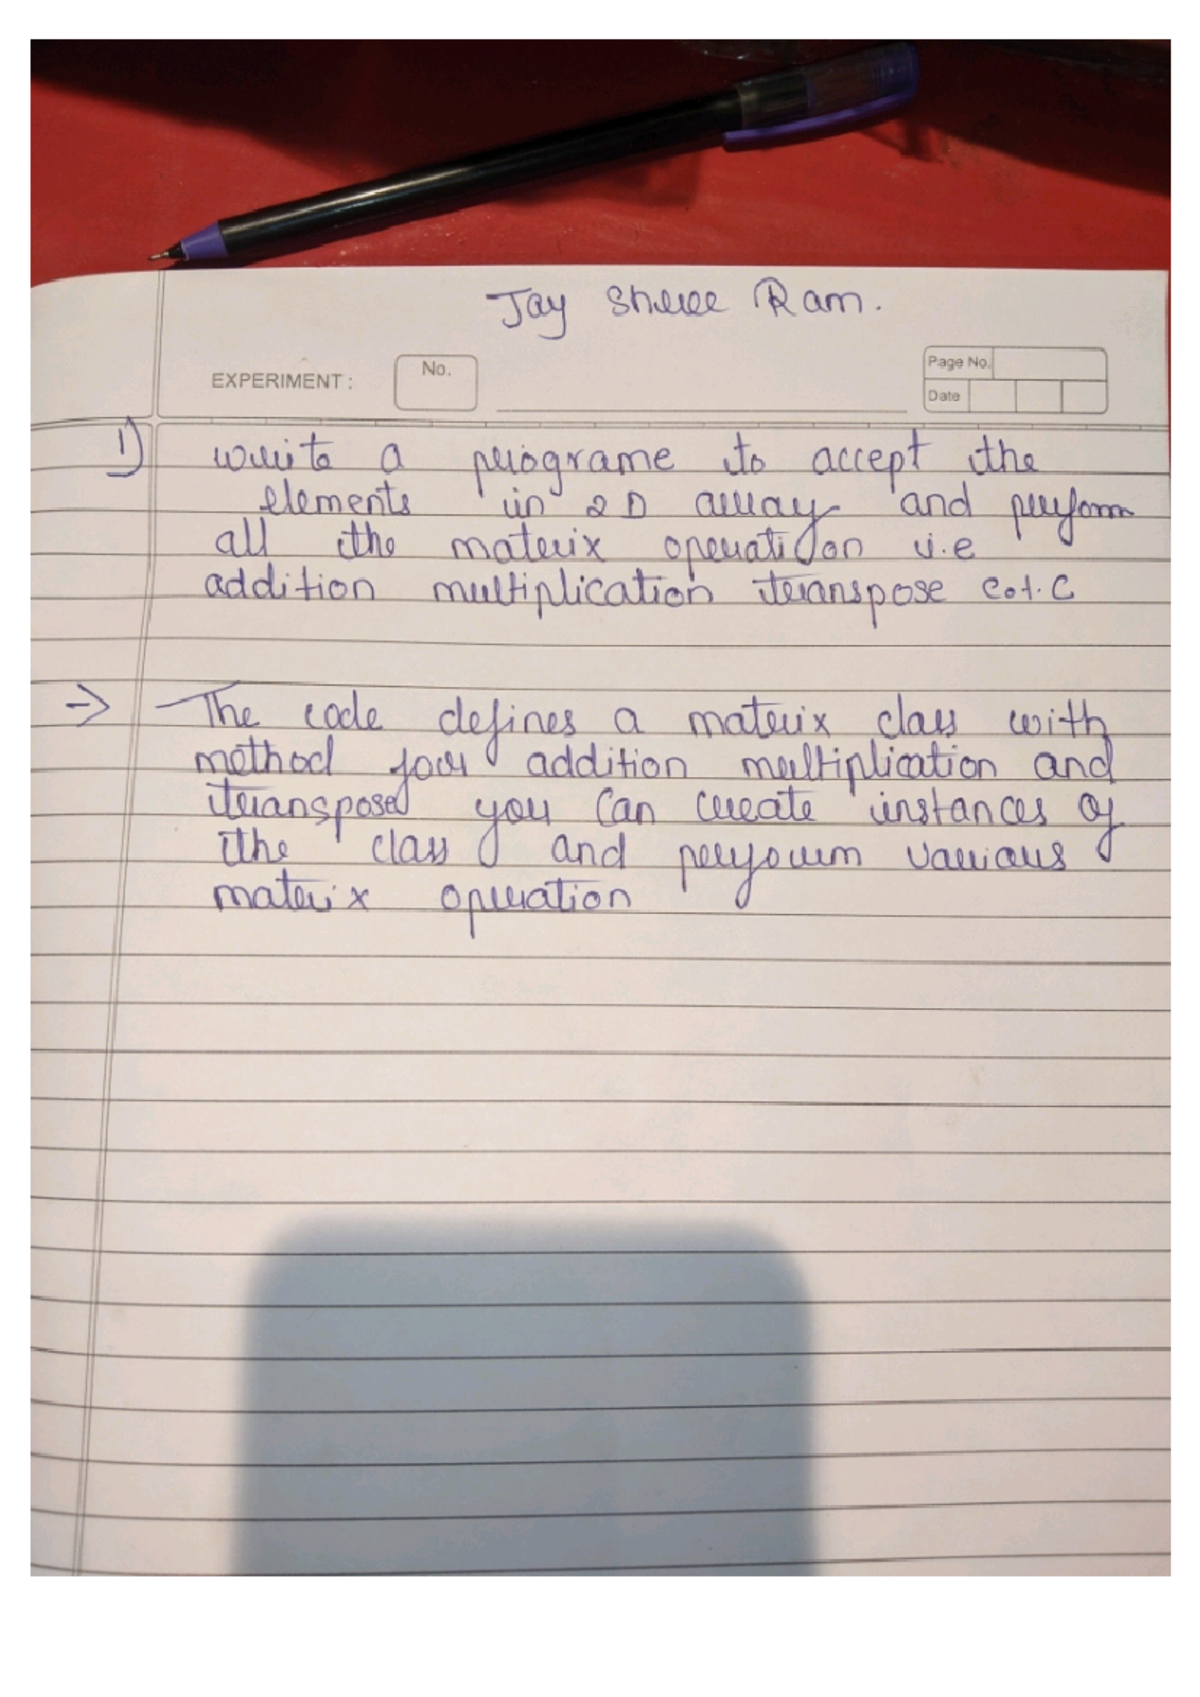 Jay Shree Ram.
EXPERIMENT :
No.
Page No.
Date
1) write a programe to accept the
elements in 2D array and perform
all the matrix operation i.e
addition multiplication transpose eot.c
→ The code defines a matrix class with
method for addition multiplication and
transpose you can create instances of
the class and perform various
matrix operation